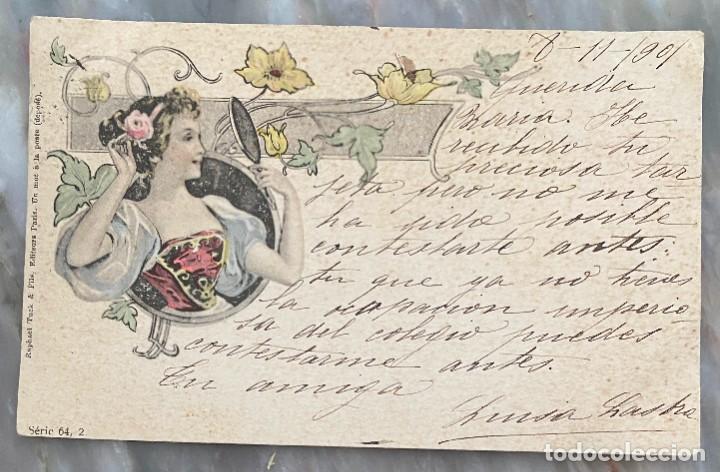 8-11-901
Querida
Maria. He
recibido tu
preciosa tar
jeta pero no me
ha sido posible
contestarte antes:
tu que ya no tienes
la ocupacion imperio
sa del colegio puedes
contestarme antes.
Tu amiga
Luisa Lastra
Raphael Tuck & Fils. Editeurs Paris. Un mot à la poste (déposé).
Série 64, 2
todocoleccion